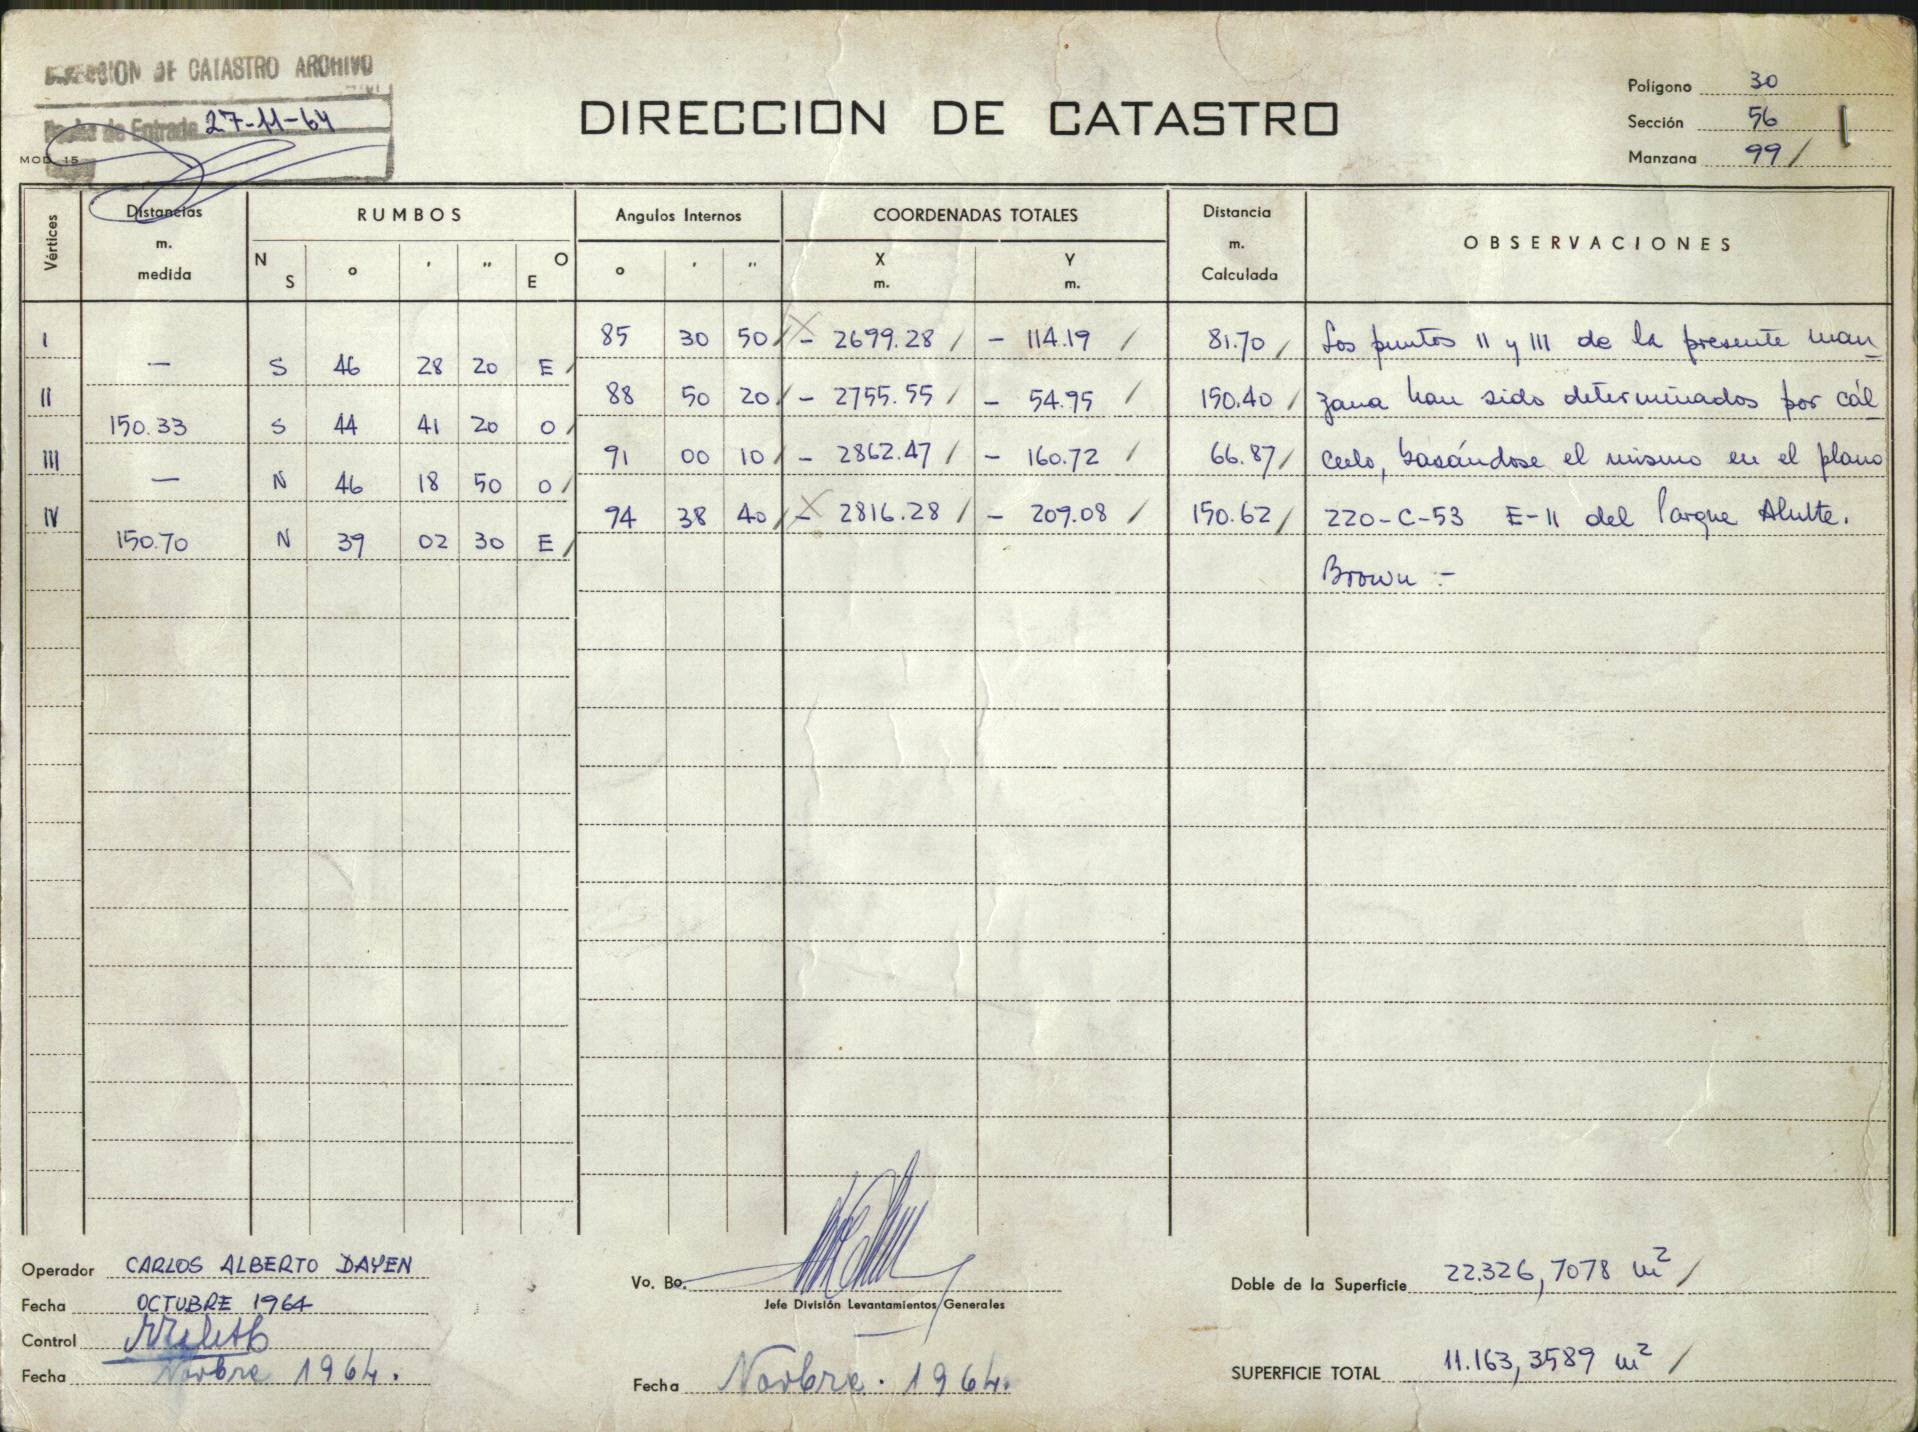 DIRECCION DE CATASTRO ARCHIVO
Fecha de Entrada 27-11-64
MOD. 15
DIRECCION DE CATASTRO
Polígono 30
Sección 56
Manzana 99 /
Vértices
Distancias
m.
medida
RUMBOS
N S ° ' " O E
Angulos Internos
° ' "
COORDENADAS TOTALES
X
m.
Y
m.
Distancia
m.
Calculada
OBSERVACIONES
I 85 30 50 / - 2699.28 / - 114.19 / 81.70 / Los puntos II y III de la presente man_
— S 46 28 20 E /
II 88 50 20 / - 2755.55 / - 54.95 / 150.40 / zana han sido determinados por cál_
150.33 S 44 41 20 O /
III 91 00 10 / - 2862.47 / - 160.72 / 66.87 / culo, basándose el mismo en el plano
— N 46 18 50 O /
IV 94 38 40 / - 2816.28 / - 209.08 / 150.62 / 220-C-53 E-11 del Parque Almte.
150.70 N 39 02 30 E /
Brown :-
Operador CARLOS ALBERTO DAYEN
Fecha OCTUBRE 1964
Control
Fecha Novbre 1964.
Vo. Bo.
Jefe División Levantamientos Generales
Fecha Novbre. 1964.
Doble de la Superficie 22.326,7078 m² /
SUPERFICIE TOTAL 11.163,3589 m² /